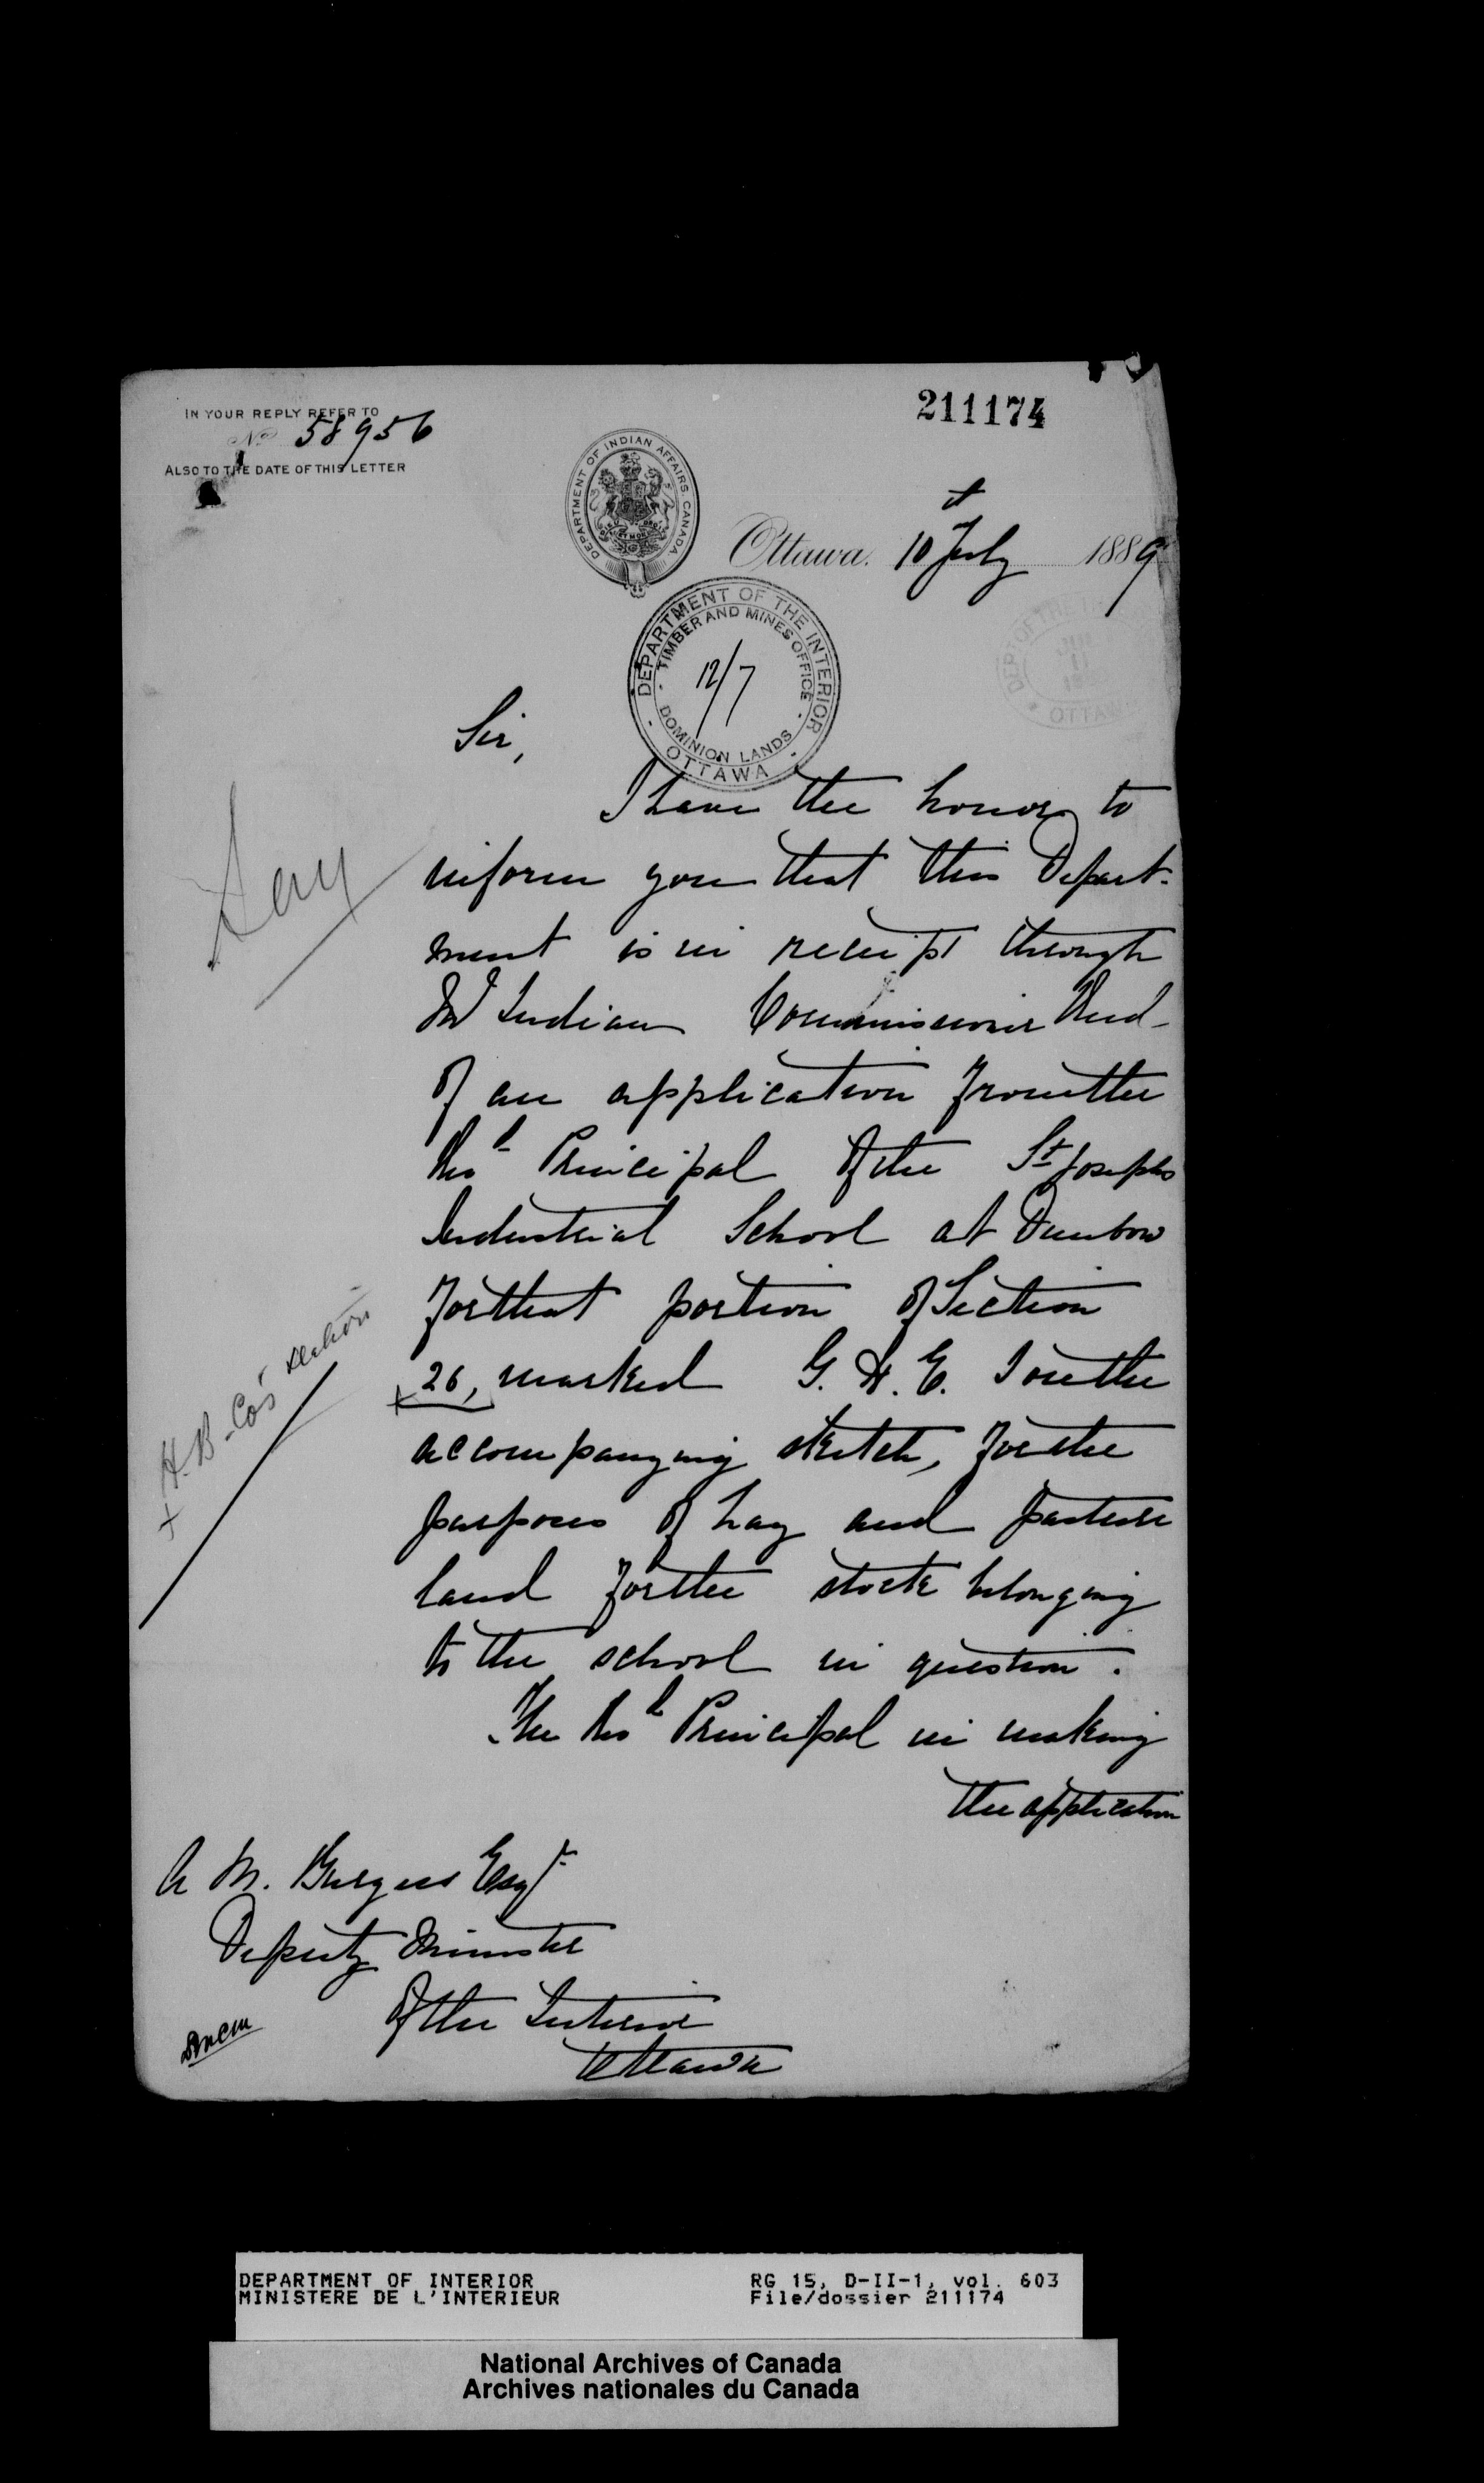 IN YOUR REPLY REFER TO
No 58956
ALSO TO THE DATE OF THIS LETTER
211174
DEPARTMENT OF INDIAN AFFAIRS CANADA
Ottawa. 10 July 1889
DEPARTMENT OF THE INTERIOR
TIMBER AND MINES OFFICE
12/7
DOMINION LANDS
OTTAWA
DEPT OF THE
OTTAWA
Sir,
I have the honor to
inform you that this Depart-
ment is in receipt through
Mr Indian Commissioner Reed
of an application from the
Revd Principal of the St Josephs
Industrial School at Dunbow
for that portion of Section
+ 26, marked G. H. E. I on the
accompanying sketch, for the
purposes of hay and pasture
land for the stock belonging
to the school in question.
The Revd Principal in making
the application
+ H. B. Co's section
A M. Burgess Esqr
Deputy Minister
of the Interior
Ottawa
DEPARTMENT OF INTERIOR
MINISTERE DE L'INTERIEUR
RG 15, D-II-1, vol. 603
File/dossier 211174
National Archives of Canada
Archives nationales du Canada